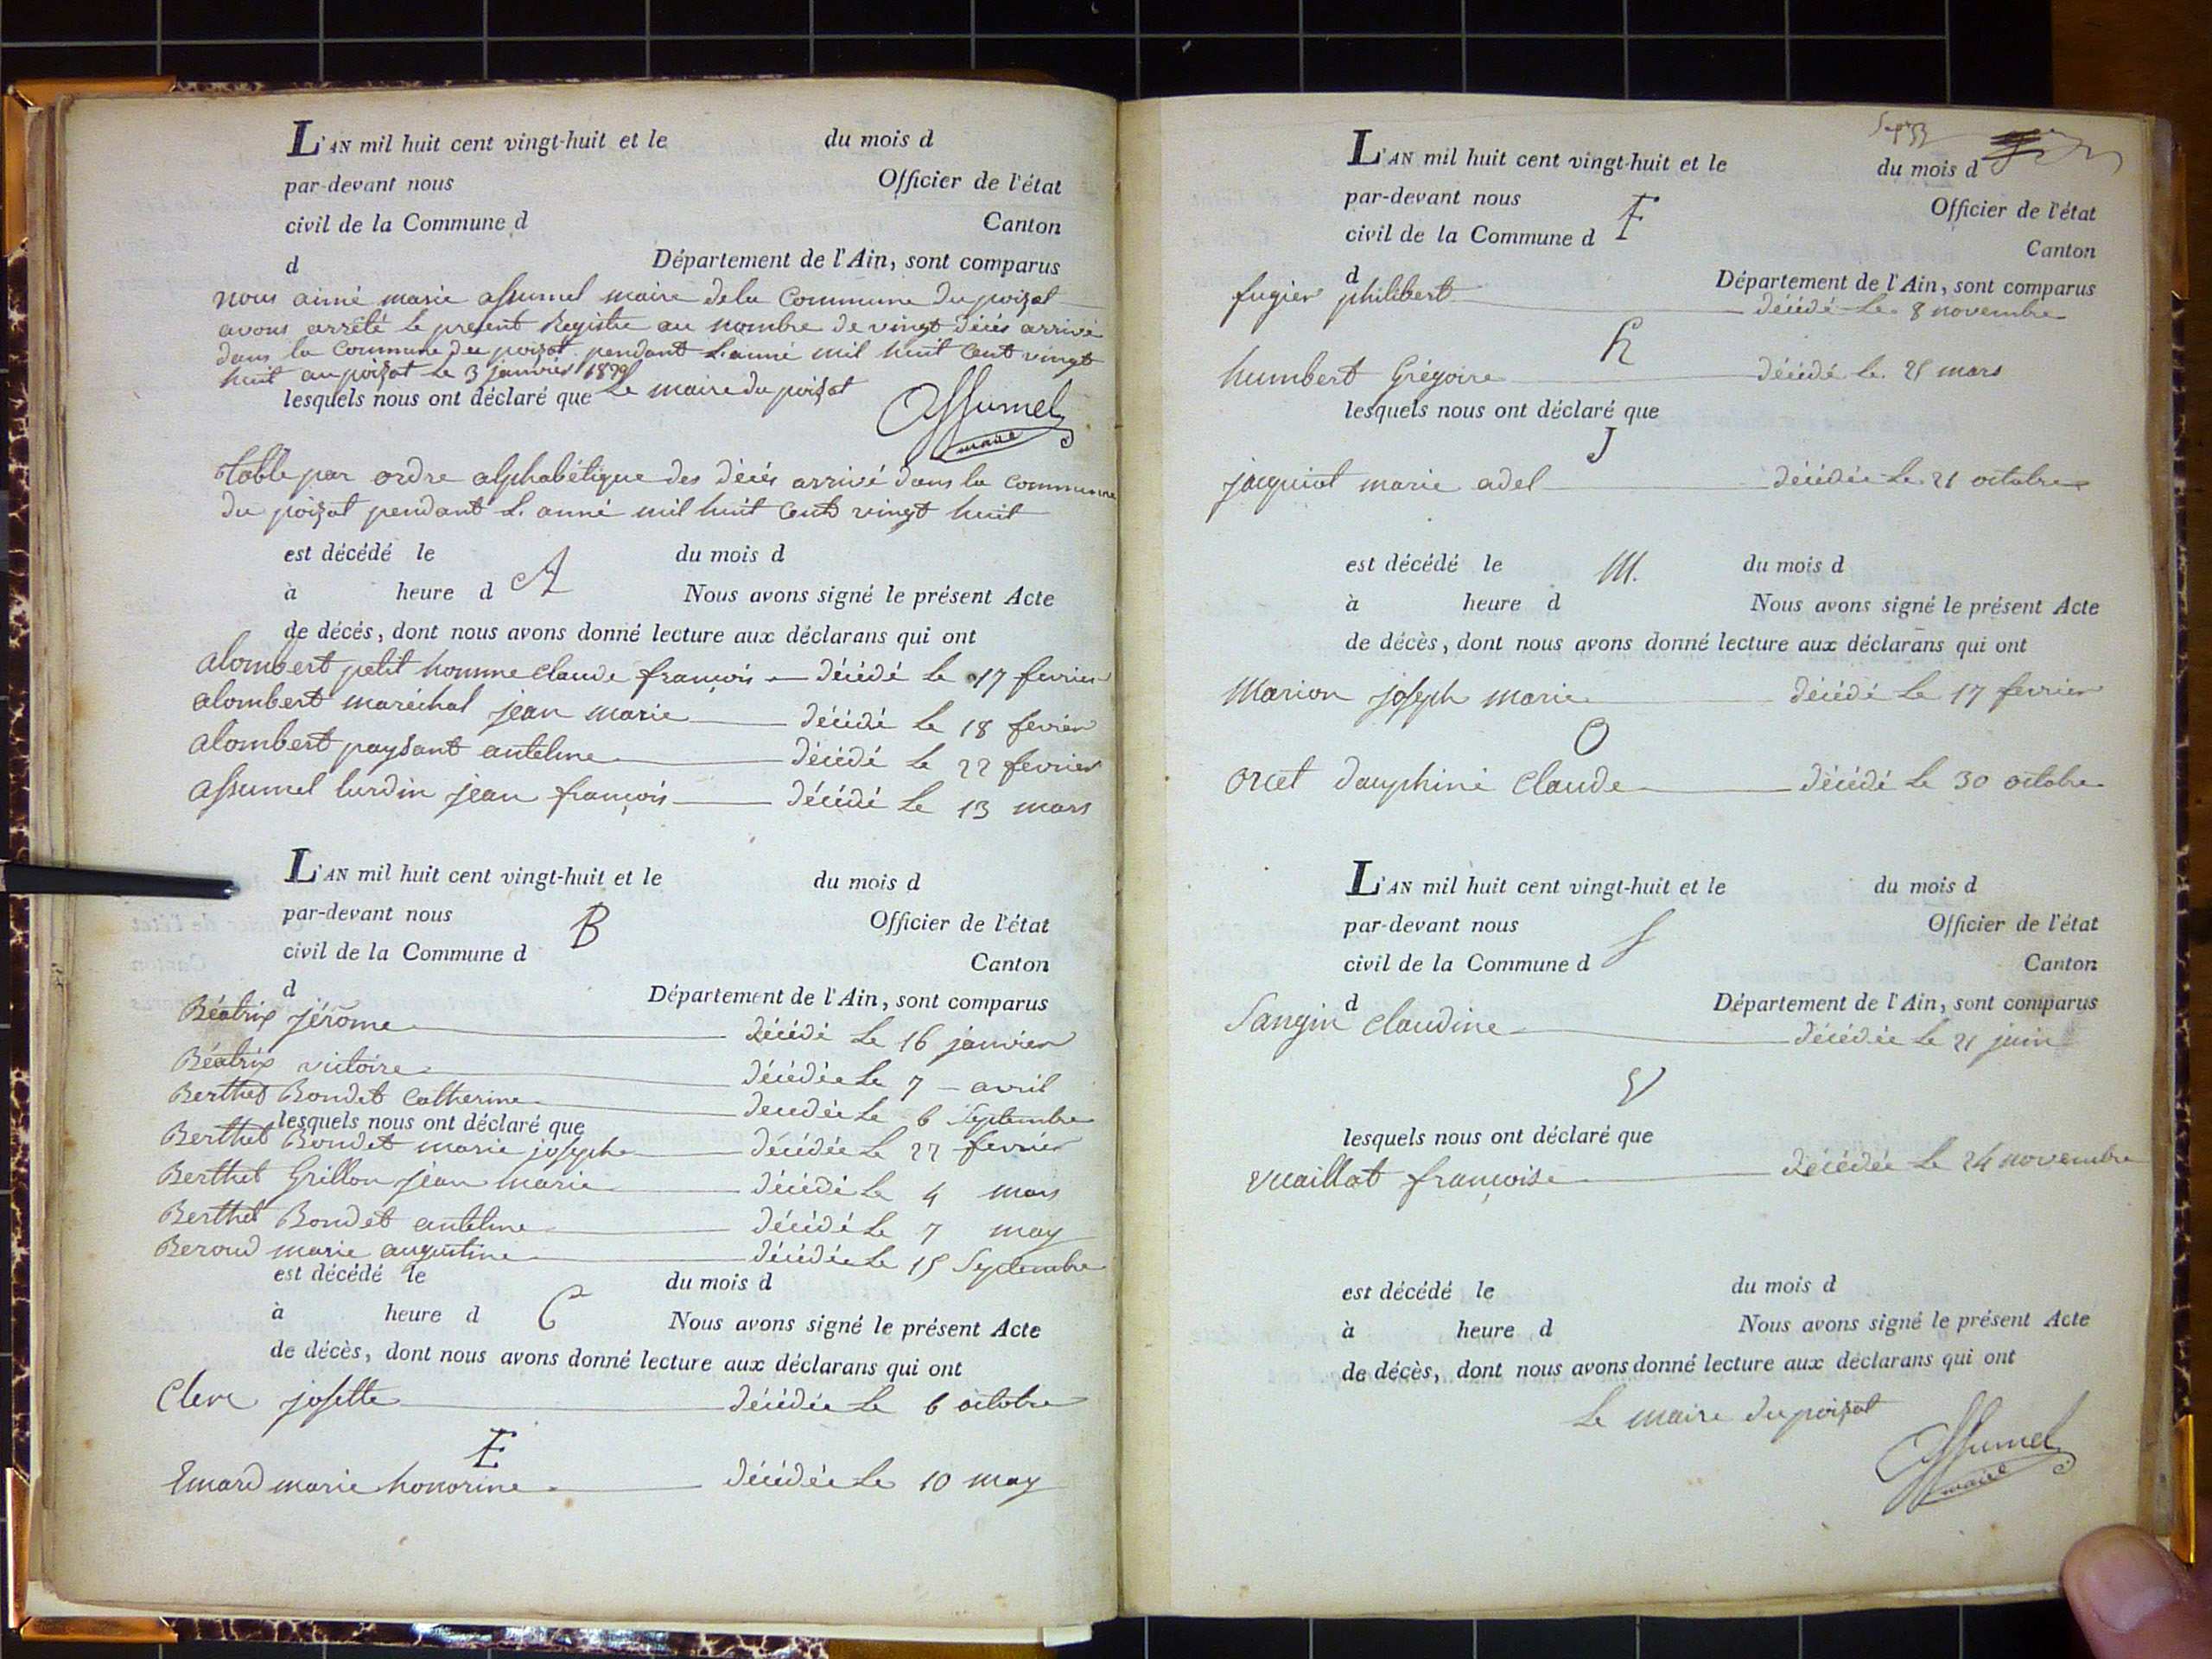 L'AN mil huit cent vingt-huit et le du mois d
par-devant nous Officier de l'état
civil de la Commune d Canton
d Département de l'Ain, sont comparus
nous aimé marie assumel maire dela Commune du poizat
avons arrêté le present Registre au nombre de vingt décés arrivé
dans la Commune du poizat pendant l'anné mil huit Cent vingt
huit au poizat le 3 janvier 1829
lesquels nous ont déclaré que Le maire du poizat
Assumel
maire
table par ordre alphabétique des décés arrivé dans la Commune
du poizat pendant L'anné mil huit Cent vingt huit
est décédé le du mois d
à heure d A Nous avons signé le présent Acte
de décès, dont nous avons donné lecture aux déclarans qui ont
alombert petit homme claude françois décédé le 17 fevrier
alombert maréchal jean marie décédé le 18 fevrier
alombert paysant antelme décédé le 22 fevrier
assumel lurdin jean françois décédé le 13 mars
L'AN mil huit cent vingt-huit et le du mois d
par-devant nous B Officier de l'état
civil de la Commune d Canton
d Département de l'Ain, sont comparus
Béatrix jérome décédé le 16 janvier
Béatrix victoire décédée le 7 avril
Berthet Bondet Catherine décédée le 6 Septembre
lesquels nous ont déclaré que
Berthet Bondet marie josephe décédée le 22 fevrier
Berthet Grillon jean marie décédé le 4 mars
Berthet Bondet antelme décédé le 7 may
Beroud marie augustine décédée le 15 Septembre
est décédé le du mois d
à heure d C Nous avons signé le présent Acte
de décès, dont nous avons donné lecture aux déclarans qui ont
Clerc josette décédée le 6 octobre
E
Emard marie honorine décédée le 10 may
L'AN mil huit cent vingt-huit et le du mois d
par-devant nous F Officier de l'état
civil de la Commune d Canton
d Département de l'Ain, sont comparus
fugier philibert décédé le 8 novembre
h
humbert Grégoire décédé le 25 mars
lesquels nous ont déclaré que
J
jacquiot marie adel décédée le 21 octobre
est décédé le M. du mois d
à heure d Nous avons signé le présent Acte
de décès, dont nous avons donné lecture aux déclarans qui ont
Marion joseph marie décédé le 17 fevrier
O
orcet dauphiné Claude décédé le 30 octobre
L'AN mil huit cent vingt-huit et le du mois d
par-devant nous S Officier de l'état
civil de la Commune d Canton
d Département de l'Ain, sont comparus
Sangin Claudine décédée le 21 juin
V
lesquels nous ont déclaré que
vuaillat françoise décédée le 24 novembre
est décédé le du mois d
à heure d Nous avons signé le présent Acte
de décès, dont nous avons donné lecture aux déclarans qui ont
Le maire du poizat
Assumel
maire